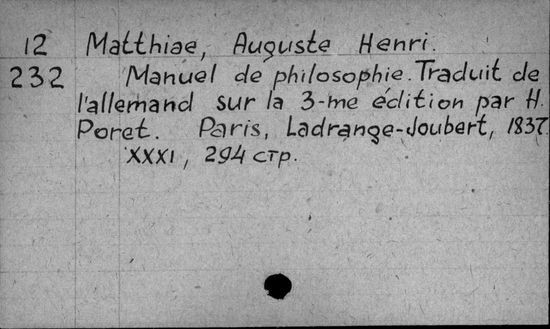 12 Matthiae, Auguste Henri.
232 Manuel de philosophie. Traduit de
l'allemand sur la 3-me édition par H.
Poret. Paris, Ladrange-Joubert, 1837.
XXXI, 294 стр.